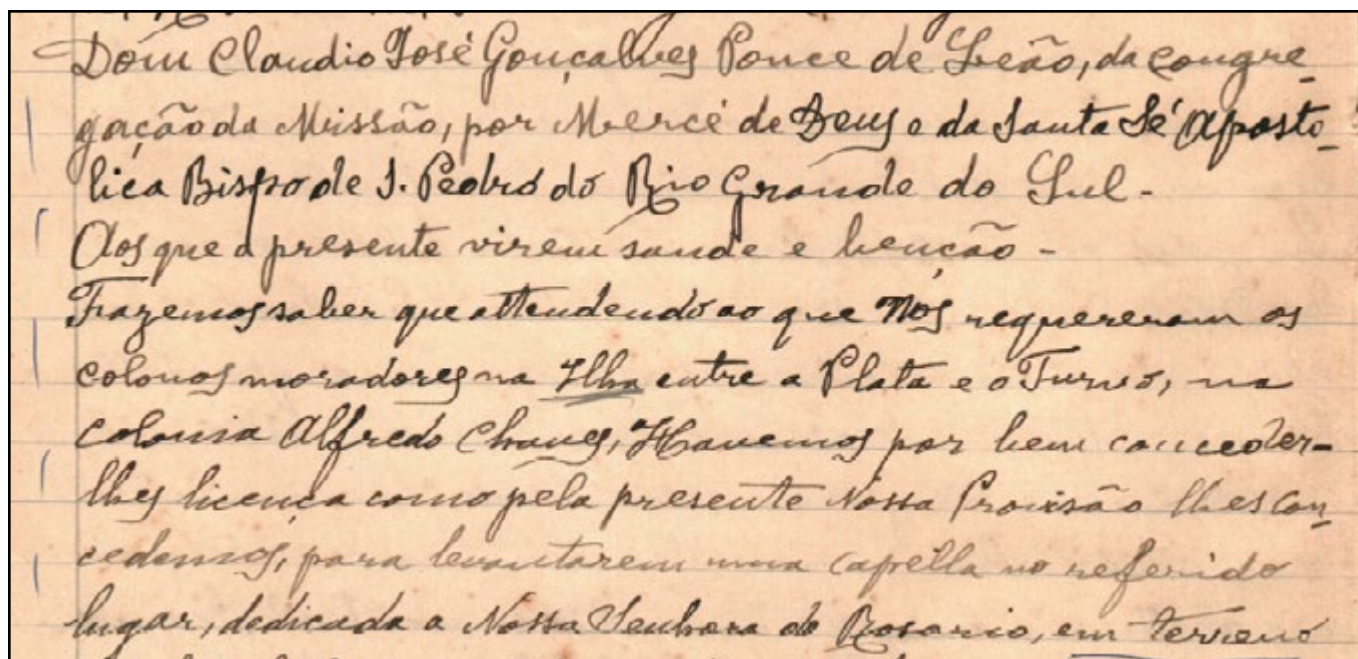 Dom Claudio José Gonçalves Ponce de Leão, da Congre-
gação da Missão, por Mercé de Deus e da Santa Sé Aposto-
lica Bispo de S. Pedro do Rio Grande do Sul -
Aos que a presente virem saude e benção -
Fazemos saber que attendendo ao que Nós requereram os
colonos moradores na Ilha entre a Plata e o Turvo, na
Colonia Alfredo Chaves, Havemos por bem conceder-
lhes licença como pela presente Nossa Provisão lhes con-
cedemos, para levantarem uma Capella no referido
lugar, dedicada a Nossa Senhora do Rosario, em terreno